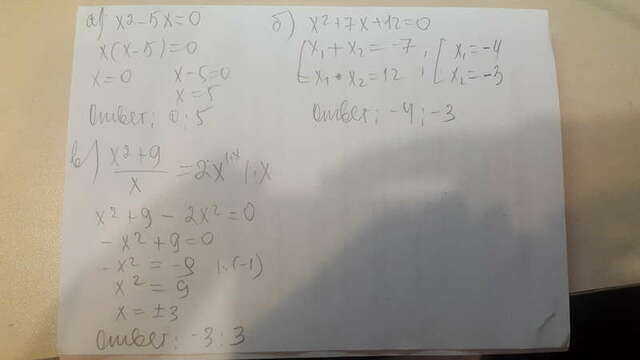 а) x² - 5x = 0
x(x-5) = 0
x = 0 x-5=0
x=5
Ответ: 0; 5
б) x² + 7x + 12 = 0
{ x₁ + x₂ = -7, { x₁ = -4
{ x₁ • x₂ = 12 , { x₂ = -3
Ответ: -4; -3
в) x² + 9 / x = 2x |·x
x² + 9 - 2x² = 0
-x² + 9 = 0
-x² = -9 |·(-1)
x² = 9
x = ±3
Ответ: -3; 3